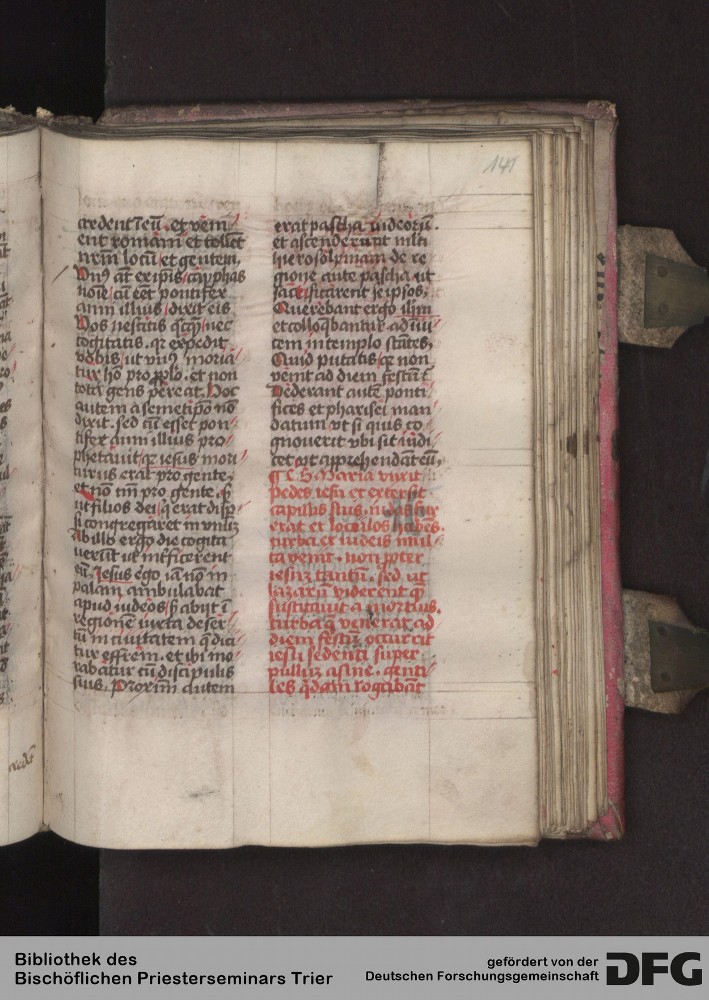 141
credent i eu . et veni
ent romani et tollent
nrm locu et gentem.
Unus at ex ipis cayphas
noie cu eet pontifex
anni illius dixit eis
Vos nescitis qcq nec
cogitatis . qr expedit
vobis ut vnus moria
tur ho pro pplo . et non
tota gens pereat. Hoc
autem a semetipo no
dixit . sed cu esset pon
tifex anni illius pro
phetauit qr iesus mori
turus erat pro gente,
et no tm pro gente . s
ut filios dei q erat disp
si congregaret in vnu
Ab illo ergo die cogita
uerut ut intficerent
eu. Jesus ergo ia no in
palam ambulabat
apud iudeos s abijt i
regione iuxta deser
tu in ciuitatem q dici
tur effrem . et ibi mo
rabatur cu discipulis
suis . Proximu autem
erat pascha iudeoru .
et ascenderunt mlti
hierosolymam de re
gione ante pascha ut
sacrificarent se ipsos,
Querebant ergo ihm
et colloqbantur ad iui
cem in templo states,
Quid putatis qr non
venit ad diem festu
Dederant aute ponti
fices et pharisei man
datum ut si quis co
gnouerit vbi sit indi
cet ut apprehendat eu,
Maria vnxit
pedes iesu et extersit
capillis suis . iudas fur
erat et loculos habes.
turba ex iudeis mul
ta venit . non ppter
iesu tantu . sed ut
lazaru viderent que
suscitauit a mortuis.
turba q venerat ad
diem festu occurrit
iesu sedenti super
pullu asine . genti
les qdam rogabat
Bibliothek des
Bischöflichen Priesterseminars Trier
gefördert von der
Deutschen Forschungsgemeinschaft
DFG